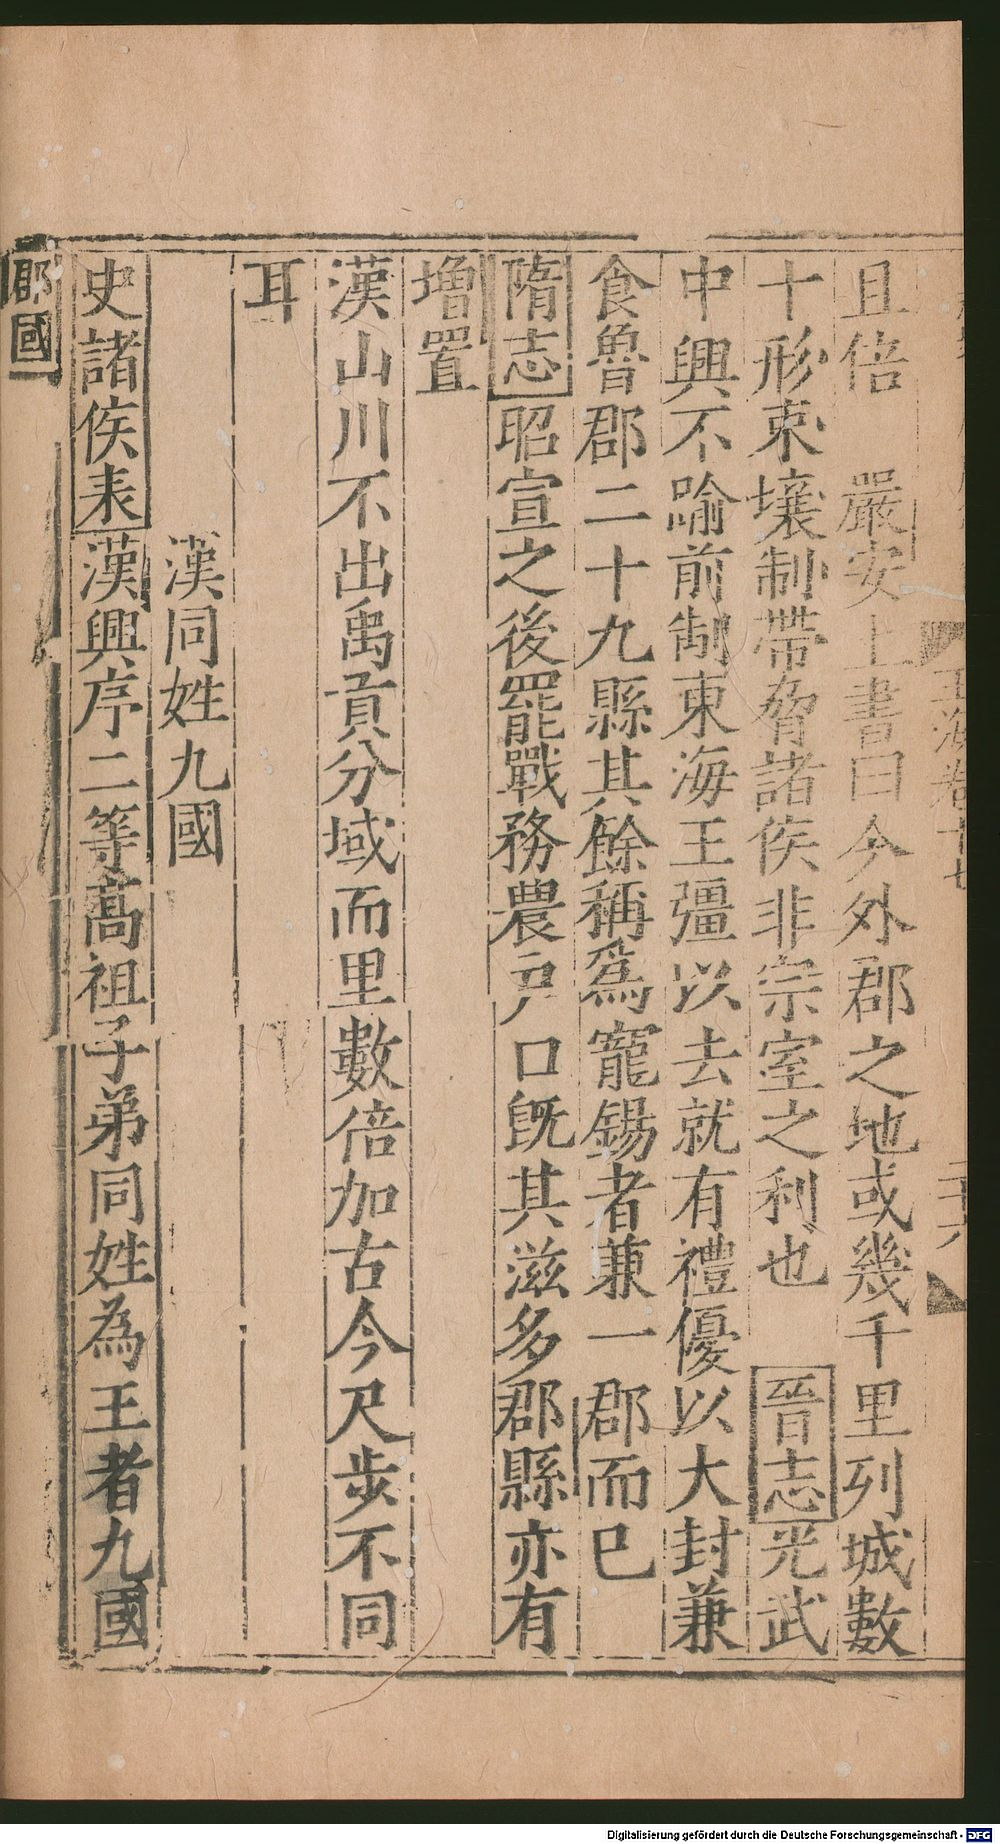 玉海卷十七
二十六
且倍　嚴安上書曰今外郡之地或幾千里列城數
十形束壤制帶脅諸侯非宗室之利也　晉志光武
中興不踰前制東海王彊以去就有禮優以大封兼
食魯郡二十九縣其餘稱爲寵錫者兼一郡而已
隋志昭宣之後罷戰務農戸口旣其滋多郡縣亦有
增置
漢山川不出禹貢分域而里數倍加古今尺步不同
耳
漢同姓九國
史諸侯表漢興序二等髙祖子弟同姓為王者九國
郡國
Digitalisierung gefördert durch die Deutsche Forschungsgemeinschaft - DFG